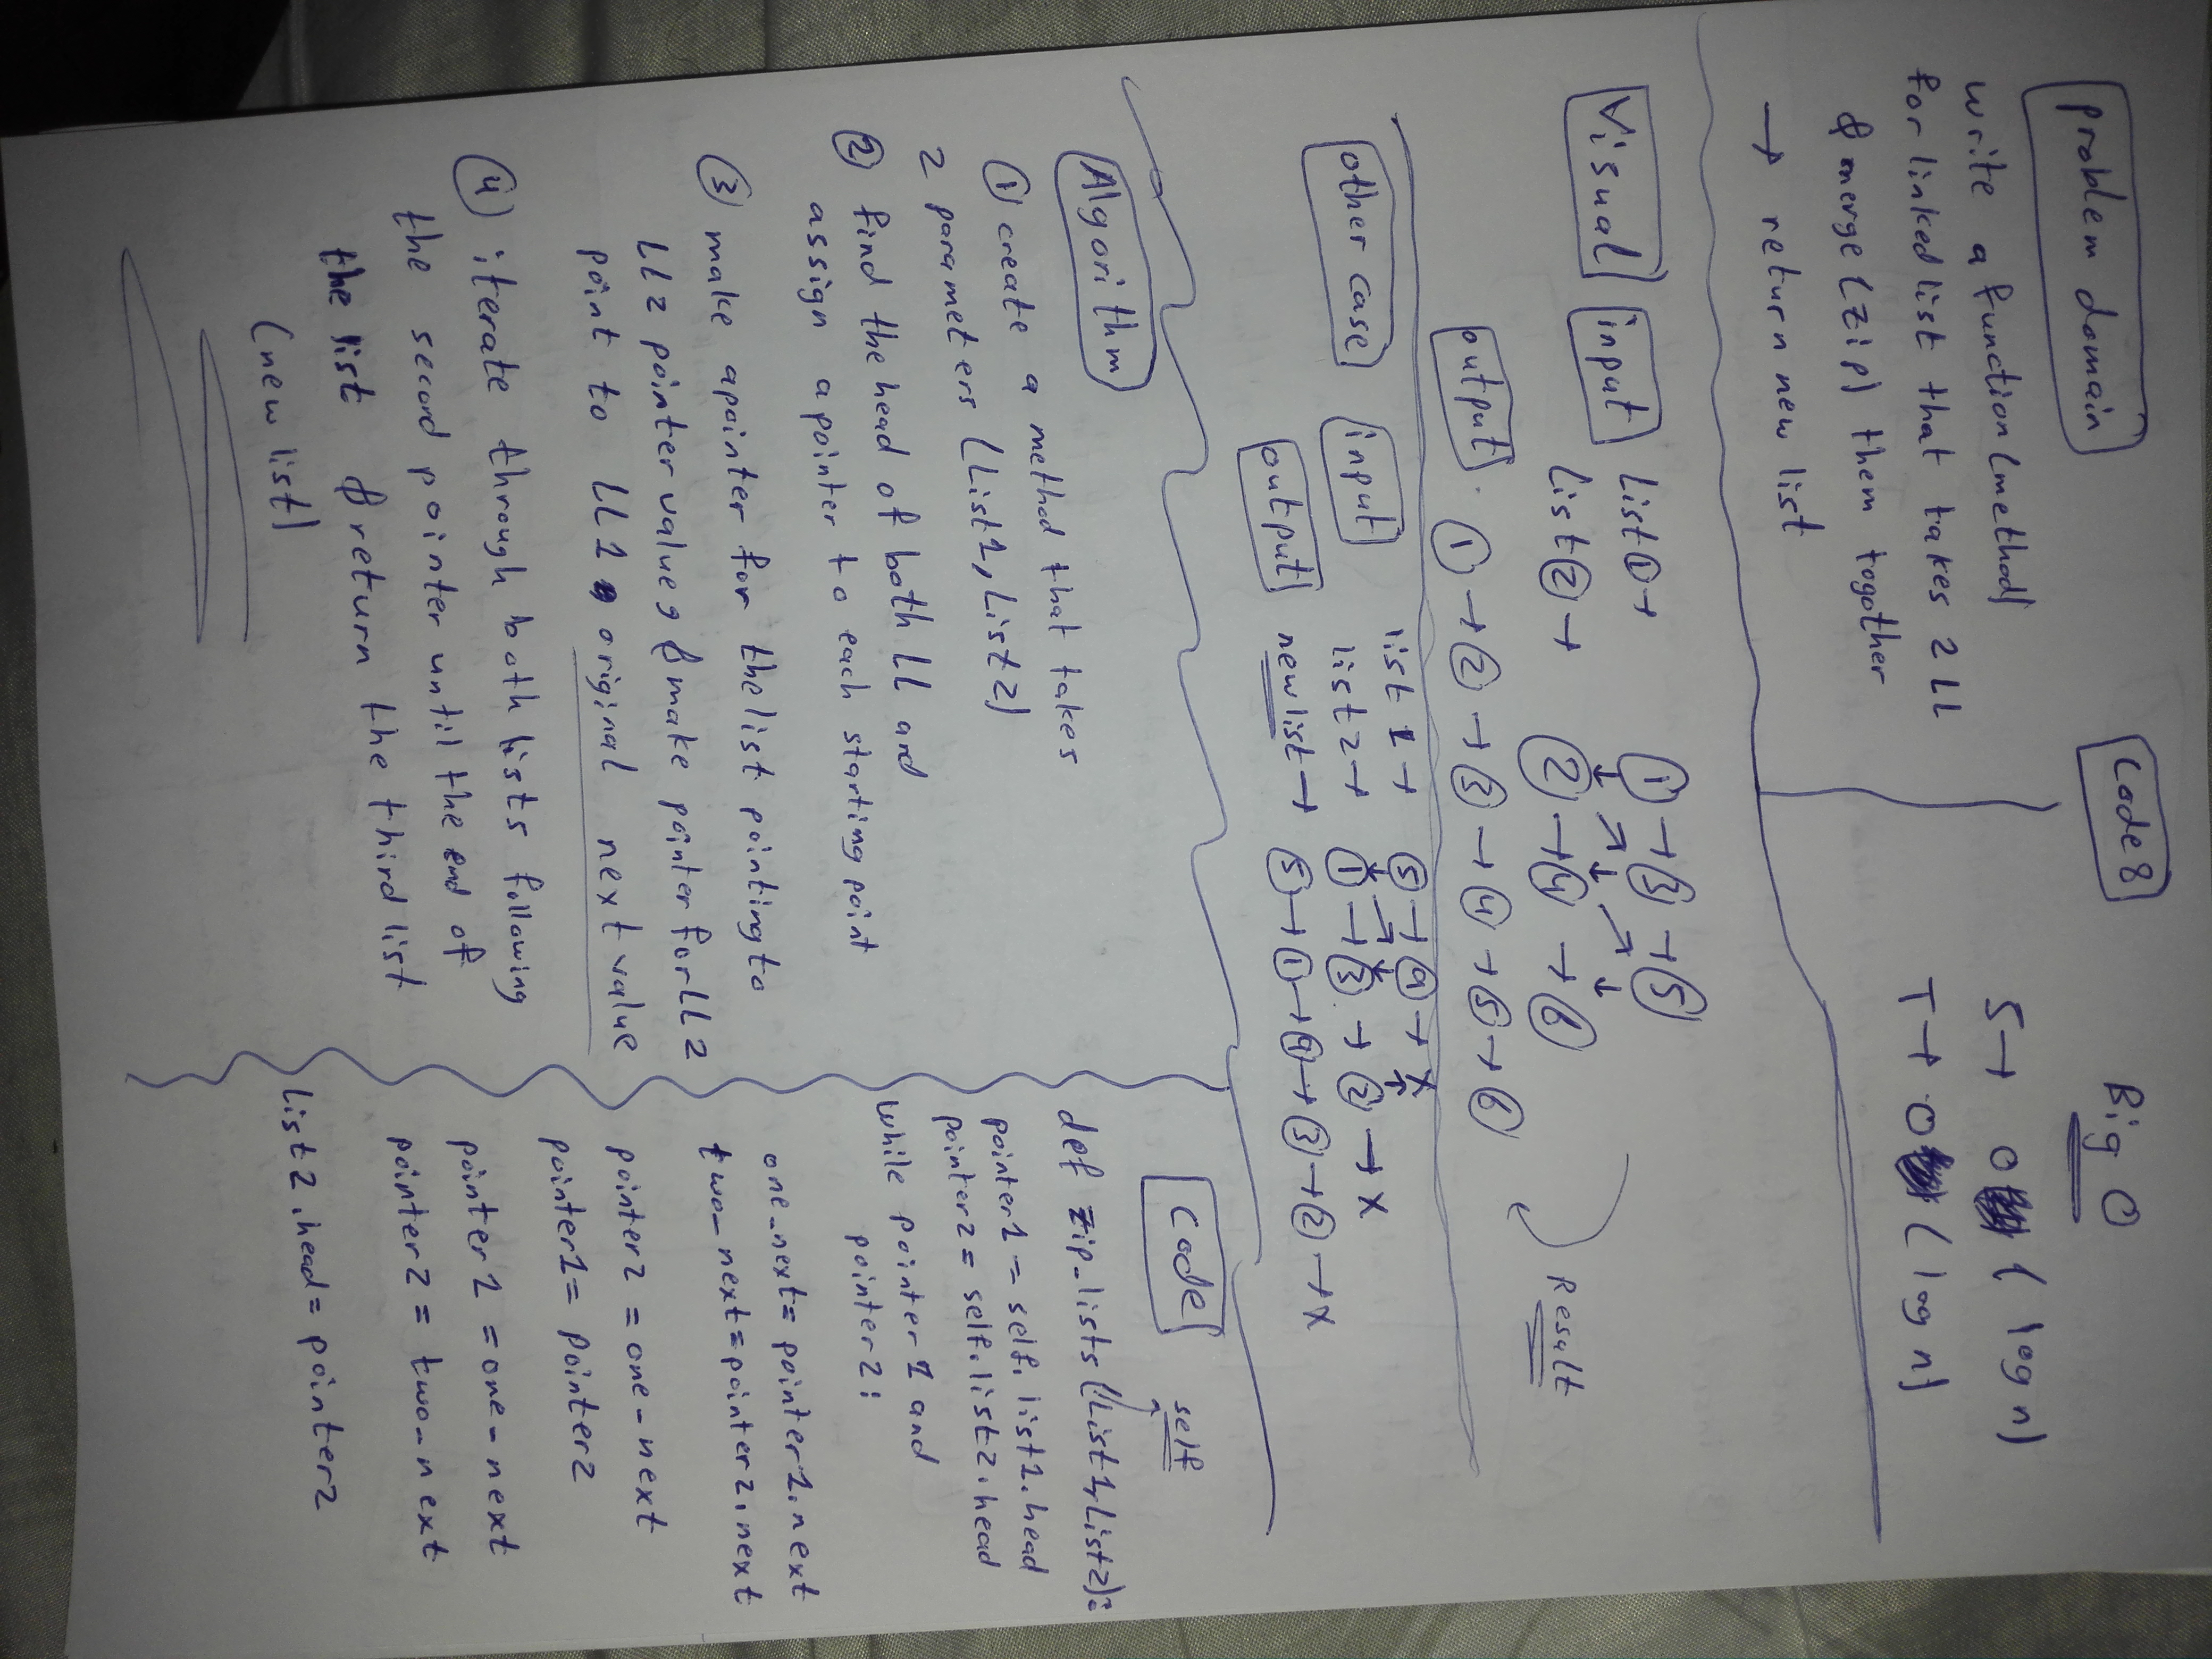 Code 8
problem domain
write a function (method)
for linked list that takes 2 LL
& merge (zip) them together
→ return new list
Big O
S → O (log n)
T → O (log n)
Visual
input
list ① → ① → ③ → ⑤
list ② → ② → ④ → ⑥
output
① → ② → ③ → ④ → ⑤ → ⑥
Result
other case
input
list 1 → ⑤ → ④ → x
list 2 → ① → ③ → ② → x
output
new list → ⑤ → ① → ④ → ③ → ② → x
Algorithm
① create a method that takes
2 parameters (List1, List2)
② find the head of both LL and
assign a pointer to each starting point
③ make a pointer for the list pointing to
LL2 pointer value, & make pointer for LL2
point to LL1 original next value
④ iterate through both lists following
the second pointer until the end of
the list & return the third list
(new list)
Code
self
def zip_lists (List1, List2):
pointer1 = self.list1.head
pointer2 = self.list2.head
while pointer 1 and
pointer2:
one_next = pointer1.next
two_next = pointer2.next
pointer2 = one_next
pointer1 = pointer2
pointer1 = one_next
pointer2 = two_next
list2.head = pointer2